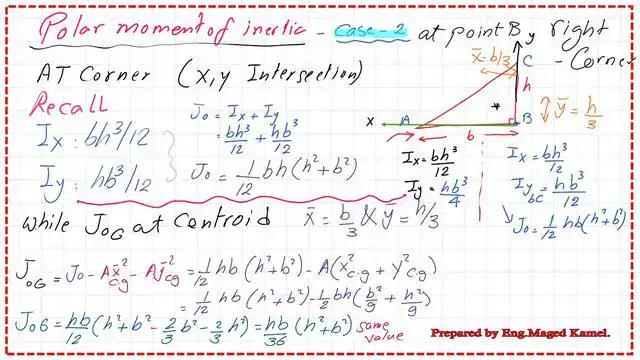 Polar moment of inertia - Case-2 at point B, right
- Corner
AT Corner (x, y Intersection)
Recall
Ix : bh³/12
Iy : hb³/12
Jo = Ix + Iy
= bh³/12 + hb³/12
Jo = 1/12 bh(h²+b²)
x̄ = b/3
y
C
h
ȳ = h/3
x
A
B
b
Ix = bh³/12
Iy = hb³/4
Ix = bh³/12
Iy BC = hb³/12
Jo = 1/12 hb(h²+b²)
while JoG at Centroid x̄ = b/3 & ȳ = h/3
JoG = Jo - Ax̄²cg - Aȳ²cg = 1/12 hb (h²+b²) - A(x²c.g + y²c.g)
= 1/12 hb (h²+b²) - 1/2 bh(b²/9 + h²/9)
JoG = hb/12 (h²+b² - 2/3 b² - 2/3 h²) = hb/36 (h²+b²) same value
Prepared by Eng.Maged Kamel.